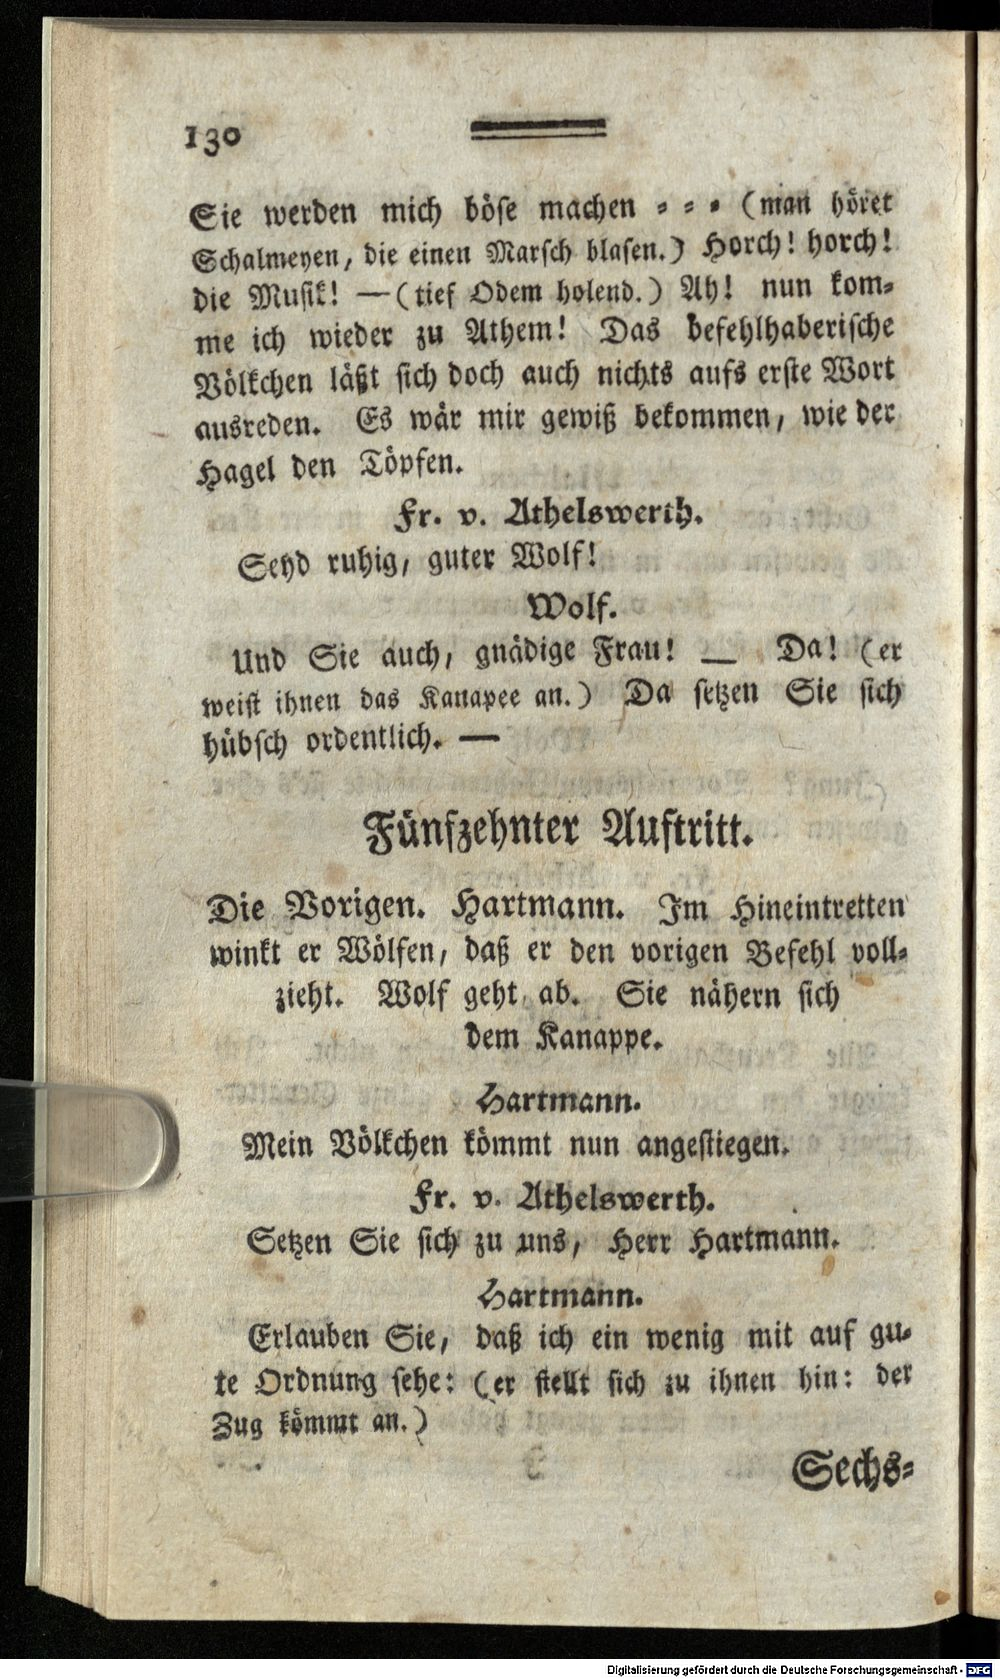 130
Sie werden mich böse machen = = = (man höret
Schalmeyen, die einen Marsch blasen.) Horch! horch!
die Musik! — (tief Odem holend.) Ah! nun kom=
me ich wieder zu Athem! Das befehlhaberische
Völkchen läßt sich doch auch nichts aufs erste Wort
ausreden. Es wär mir gewiß bekommen, wie der
Hagel den Töpfen.
Fr. v. Athelswerth.
Seyd ruhig, guter Wolf!
Wolf.
Und Sie auch, gnädige Frau! — Da! (er
weist ihnen das Kanapee an.) Da setzen Sie sich
hübsch ordentlich. —
Fünfzehnter Auftritt.
Die Vorigen. Hartmann. Im Hineintretten
winkt er Wölfen, daß er den vorigen Befehl voll=
zieht. Wolf geht ab. Sie nähern sich
dem Kanappe.
Hartmann.
Mein Völkchen kömmt nun angestiegen.
Fr. v. Athelswerth.
Setzen Sie sich zu uns, Herr Hartmann.
Hartmann.
Erlauben Sie, daß ich ein wenig mit auf gu=
te Ordnung sehe: (er stellt sich zu ihnen hin: der
Zug kömmt an.)
Sechs=
Digitalisierung gefördert durch die Deutsche Forschungsgemeinschaft - DFG